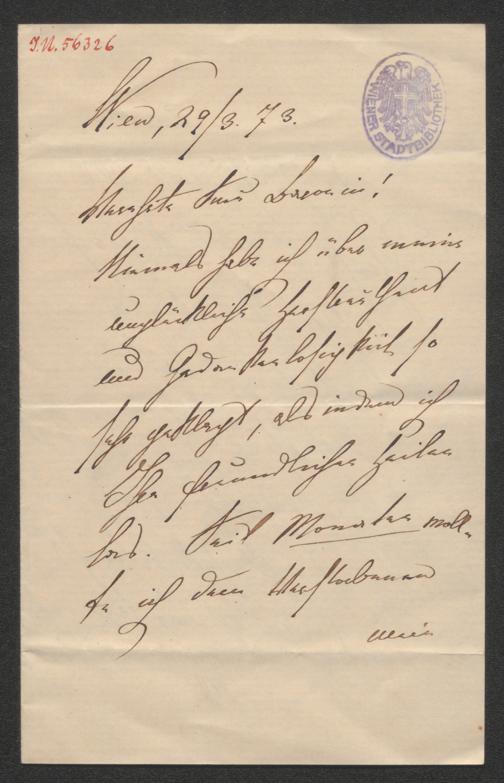 I.N. 56326
WIENER STADTBIBLIOTHEK
Wien, 29/3. 73.
Verehrte Frau Baronin!
Niemals habe ich über meine
unglückliche Zerstreutheit
und Gedankenlosigkeit so
sehr geklagt, als indem ich
Ihre freundlichen Zeilen
las. Seit Monaten woll-
te ich dem Verstorbenen
mein